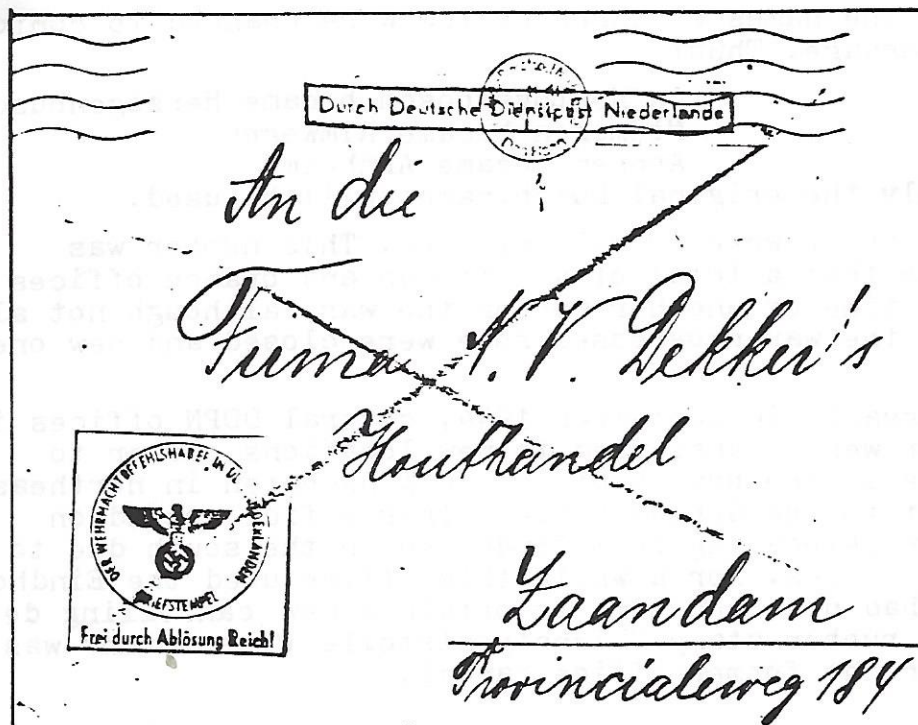 Durch Deutsche Dienstpost Niederlande
An die
Firma N.V. Dekker's
Houthandel
Zaandam
Provincialeweg 184
DER WEHRMACHTBEFEHLSHABER IN DEN NIEDERLANDEN
BRIEFSTEMPEL
Frei durch Ablösung Reich!